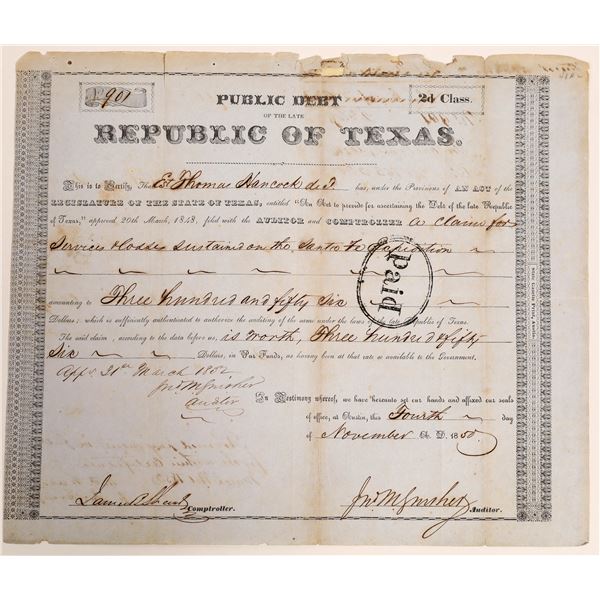 No 901
PUBLIC DEBT
2d Class.
OF THE LATE
REPUBLIC OF TEXAS.
This is to Certify, That Est Thomas Hancock decd has, under the Provisions of AN ACT of the
LEGISLATURE OF THE STATE OF TEXAS, entitled "An Act to provide for ascertaining the Debt of the late Republic
of Texas," approved 20th March, 1848, filed with the AUDITOR AND COMPTROLLER a claim for
Services & losses sustained on the Santa Fe Expedition
amounting to Three hundred and fifty six
Dollars; which is sufficiently authenticated to authorize the auditing of the same under the laws of the late Republic of Texas.
The said claim, according to the data before us, is worth, Three hundred & fifty
Six Dollars, in Par Funds, as having been at that rate so available to the Government.
Paid
31st March 1852
Jno M Swisher
Auditor
In Testimony whereof, we have hereunto set our hands and affixed our seals
of office, at Austin, this Fourth day
of November A. D. 1850.
James B Shaw Comptroller.
Jno M Swisher Auditor.